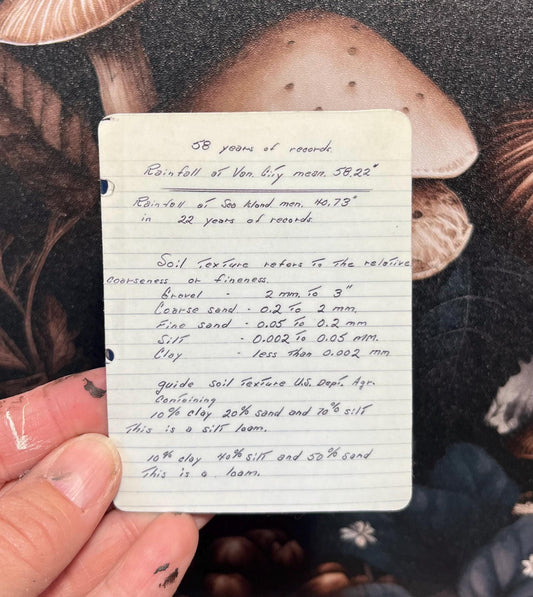 58 years of records.
Rainfall at Van. City mean. 58.22"
Rainfall at Sea Island men. 40.73"
in 22 years of records
Soil Texture refers to the relative
coarseness or fineness.
Gravel - 2 mm. to 3"
Coarse sand. - 0.2 to 2 mm.
Fine sand - 0.05 to 0.2 mm
Silt - 0.002 to 0.05 mm.
Clay - less than 0.002 mm
guide soil texture U.S. Dept. Agr.
Containing
10% clay 20% sand and 70% silt
This is a silt loam.
10% clay 40% silt and 50% sand
This is a loam.